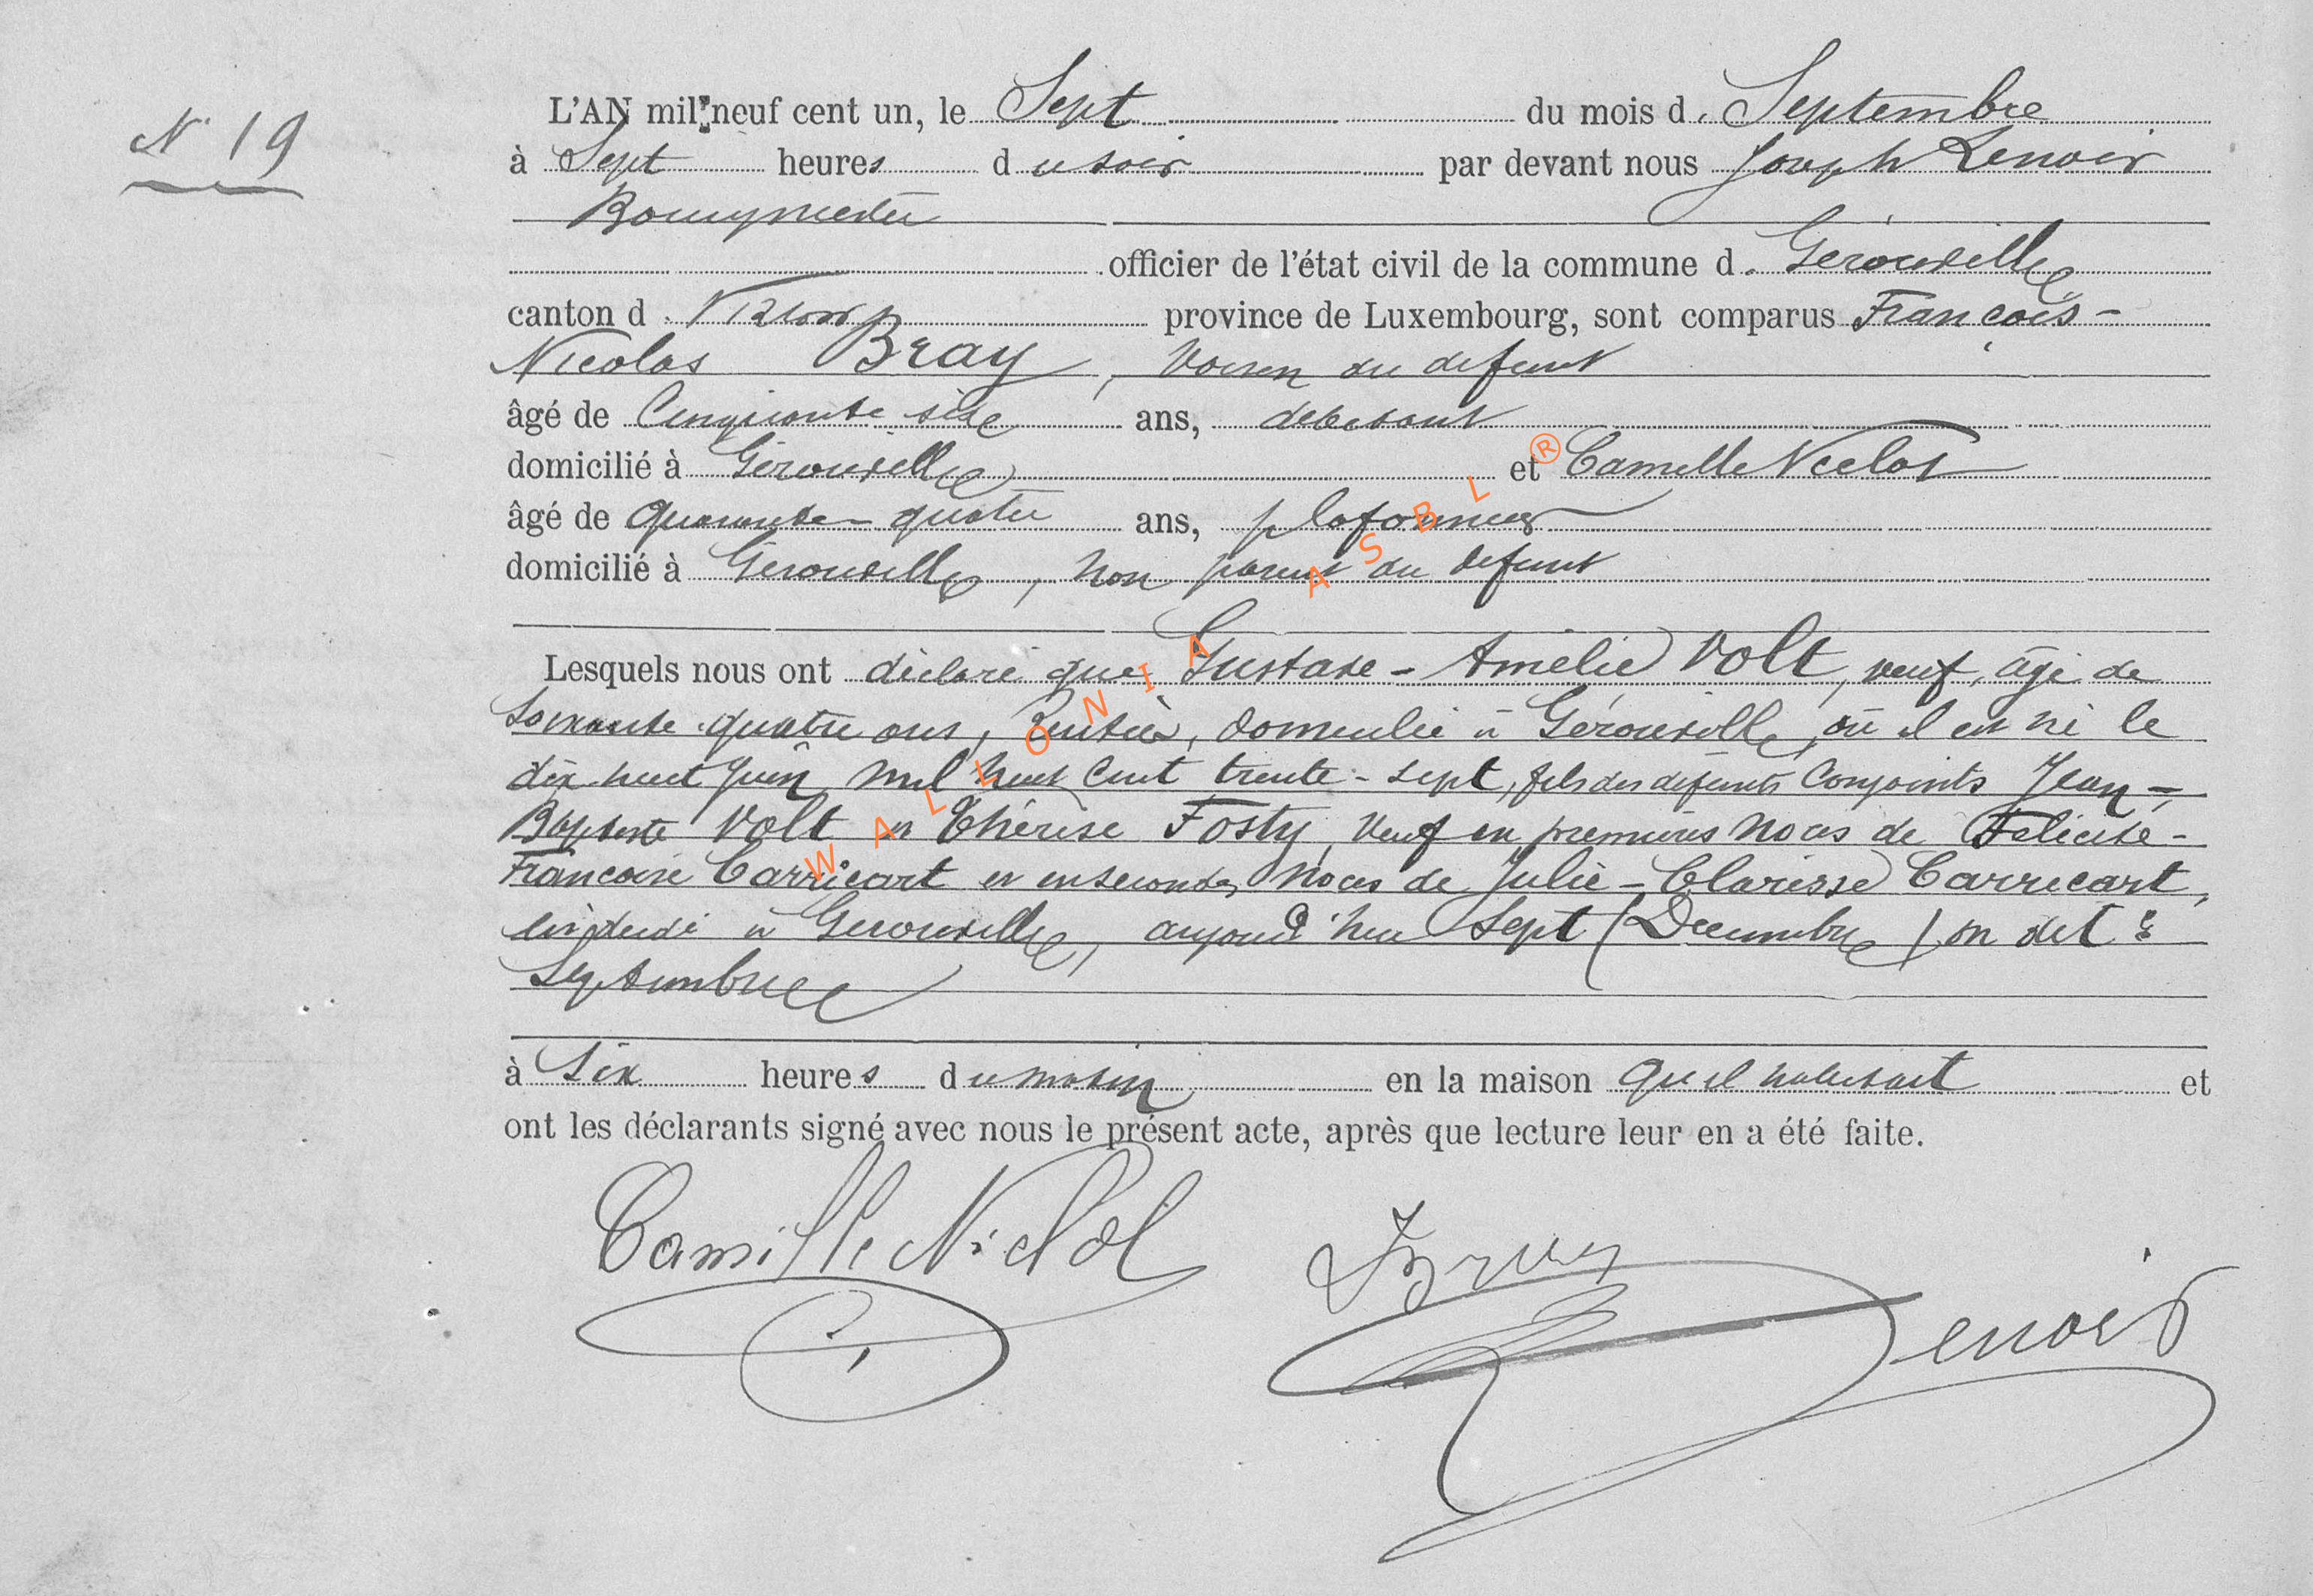 N° 19
L'AN mil neuf cent un, le Sept du mois d. Septembre
à Sept heures du soir par devant nous Joseph Lenoir
Bourgmestre
officier de l'état civil de la commune d. Gérouville
canton d. Virton province de Luxembourg, sont comparus François-
Nicolas Bray, voisin du défunt
âgé de Cinquante six ans, débitant
domicilié à Gérouville et Camille Niclot
âgé de quarante-quatre ans, plafonneur
domicilié à Gérouville, non parent du défunt
Lesquels nous ont déclaré que Gustave-Amélie Volt, veuf, âgé de
Soixante quatre ans, Rentier, domicilié à Gérouville, où il est né le
dix huit Juin mil huit cent trente-sept, fils des défunts Conjoints Jean-
Baptiste Volt et Thérèse Fosty, Veuf en premières Noces de Félicité-
Françoise Carricart et en secondes Noces de Julie-Clarisse Carricart,
est décédé à Gérouville, aujourd'hui Sept (Décembre) on dit :
Septembre
à Six heures du matin en la maison qu'il habitait et
ont les déclarants signé avec nous le présent acte, après que lecture leur en a été faite.
Camille Niclot Bray
Lenoir
WALLONIA ASBL ®